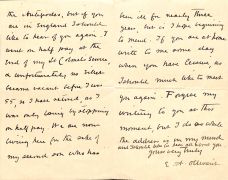 the Antipodes, but if you
are in England I should
like to hear of you again. I
went on half pay at the
end of my Lt Colonels Service
& unfortunately, no billet
became vacant before I was
55, so I have retired, as I
was only losing by stopping
on half pay. We are now
living here for the sake of
my second son who has
been ill for nearly three
years, but is I hope beginning
to mend. If you are at home
write to me some day
when you have leisure as
I should much like to meet
you again. Forgive my
writing to you at this
moment, but I do so while
the address is in my mind
and I should like to hear all about you
Yours very truly
E. A.